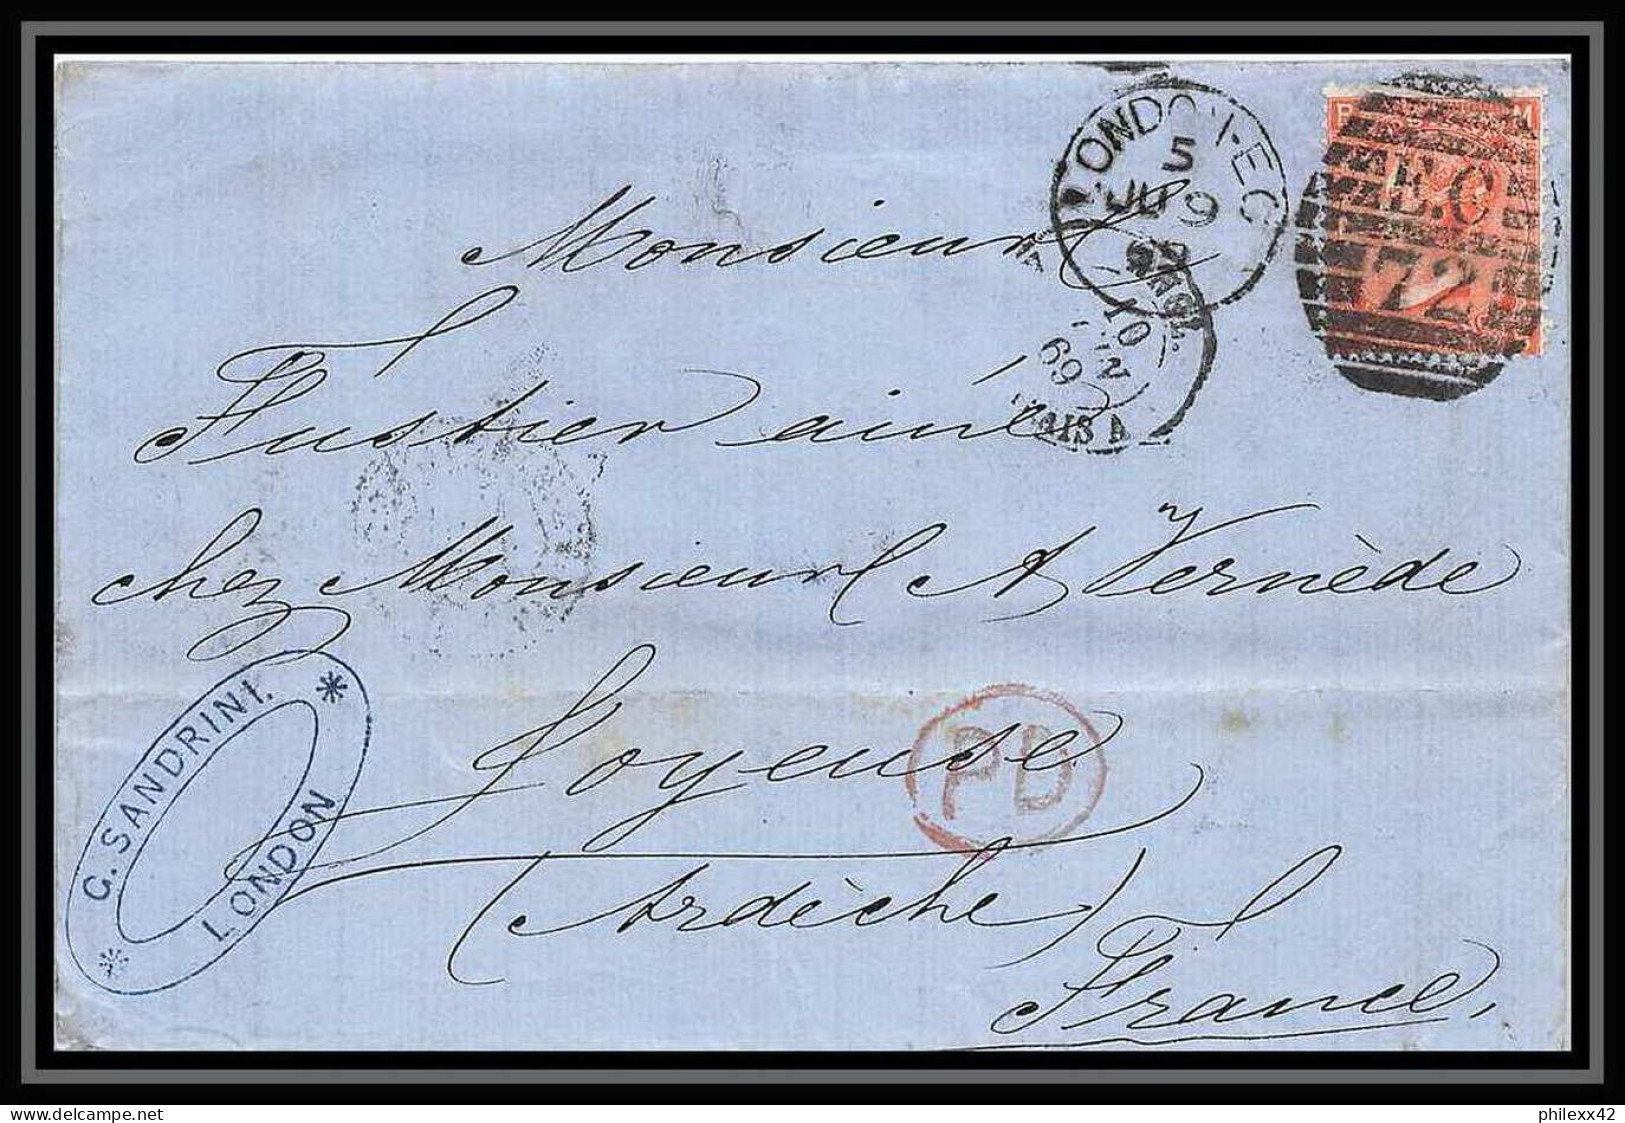 LONDON·EC
5
JU 9
69
P M
E.C
72
10
69
Monsieur
Fustier ainé
chez Monsieur A Vernède
Joyeuse
(Ardèche)
France,
PD
G. SANDRINI.
LONDON
delcampe.net
philexx42